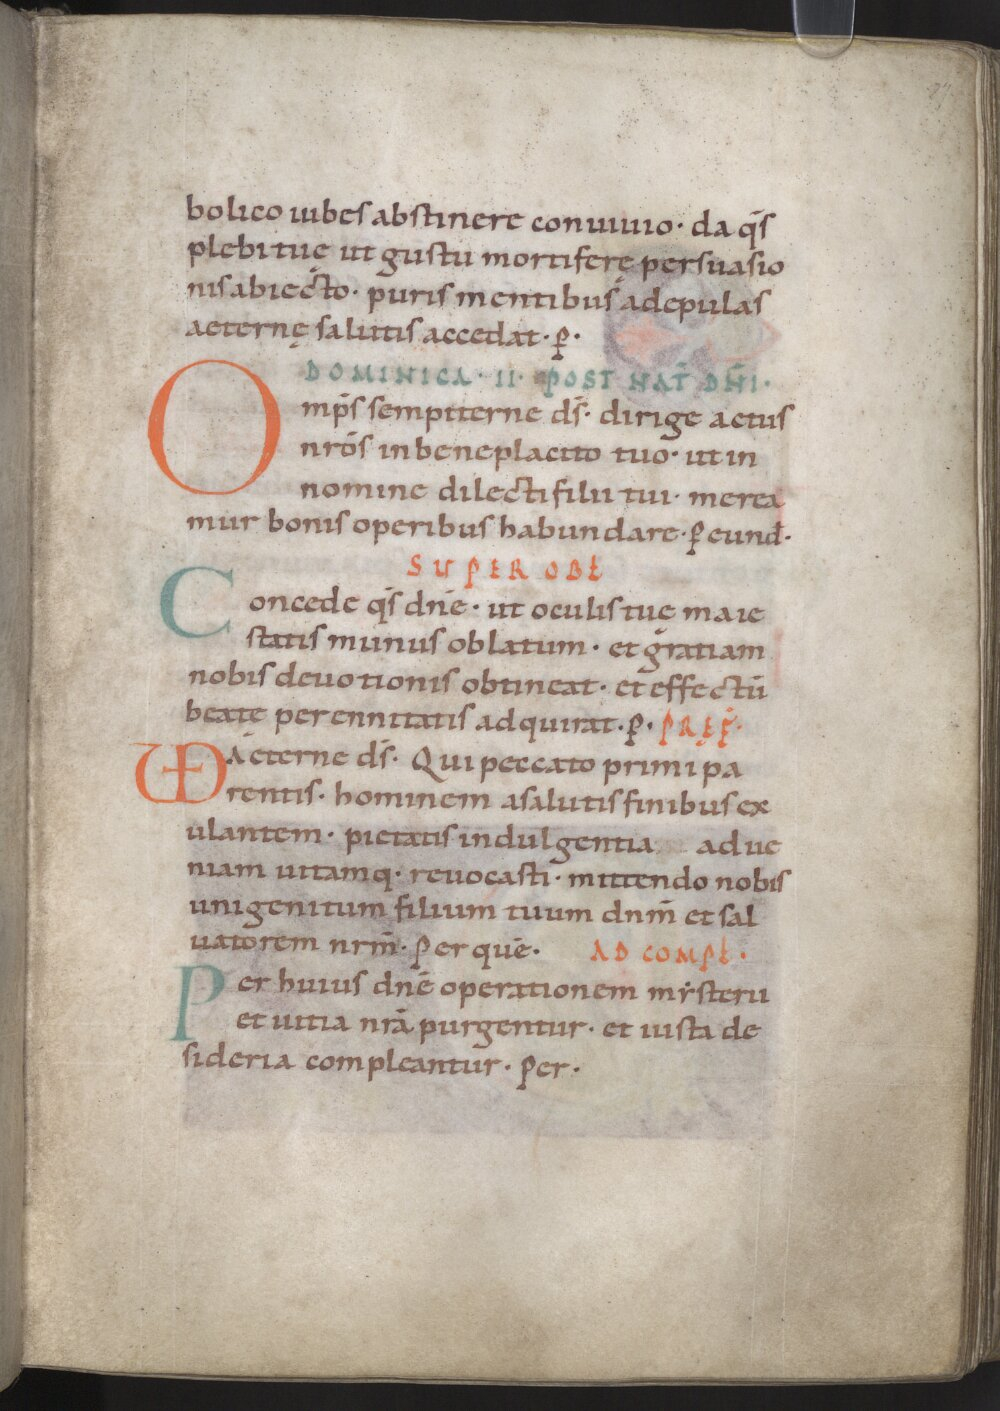 bolico iubes abstinere conuiuio· da q̄s
plebi tuę ut gustu mortiferę persuasio
nis abiecto· puris mentibus ad epulas
aeternę salutis accedat· p̄·
DOMINICA· II· POST NAT̄ DN̄I·
Omp̄s sempiterne d̄s· dirige actus
nr̄os in beneplacito tuo· ut in
nomine dilecti filii tui· merea
mur bonis operibus habundare· p̄ eund̄·
SUPER OBŁ
Concede q̄s dn̄e· ut oculis tuę maie
statis munus oblatum· et gratiam
nobis deuotionis obtineat· et effectū
beatę perennitatis adquirat· p̄· PRĘF̄·
VD Aeterne d̄s· Qui peccato primi pa
rentis· hominem a salutis finibus ex
ulantem· pietatis indulgentia ad ue
niam uitamq·  reuocasti· mittendo nobis
unigenitum filium tuum dn̄m et sal
uatorem nr̄m· Per quē· AD COMPŁ·
Per huius dn̄e operationem mẏsterii
et uitia nr̄a purgentur· et iusta de
sideria compleantur· Per·